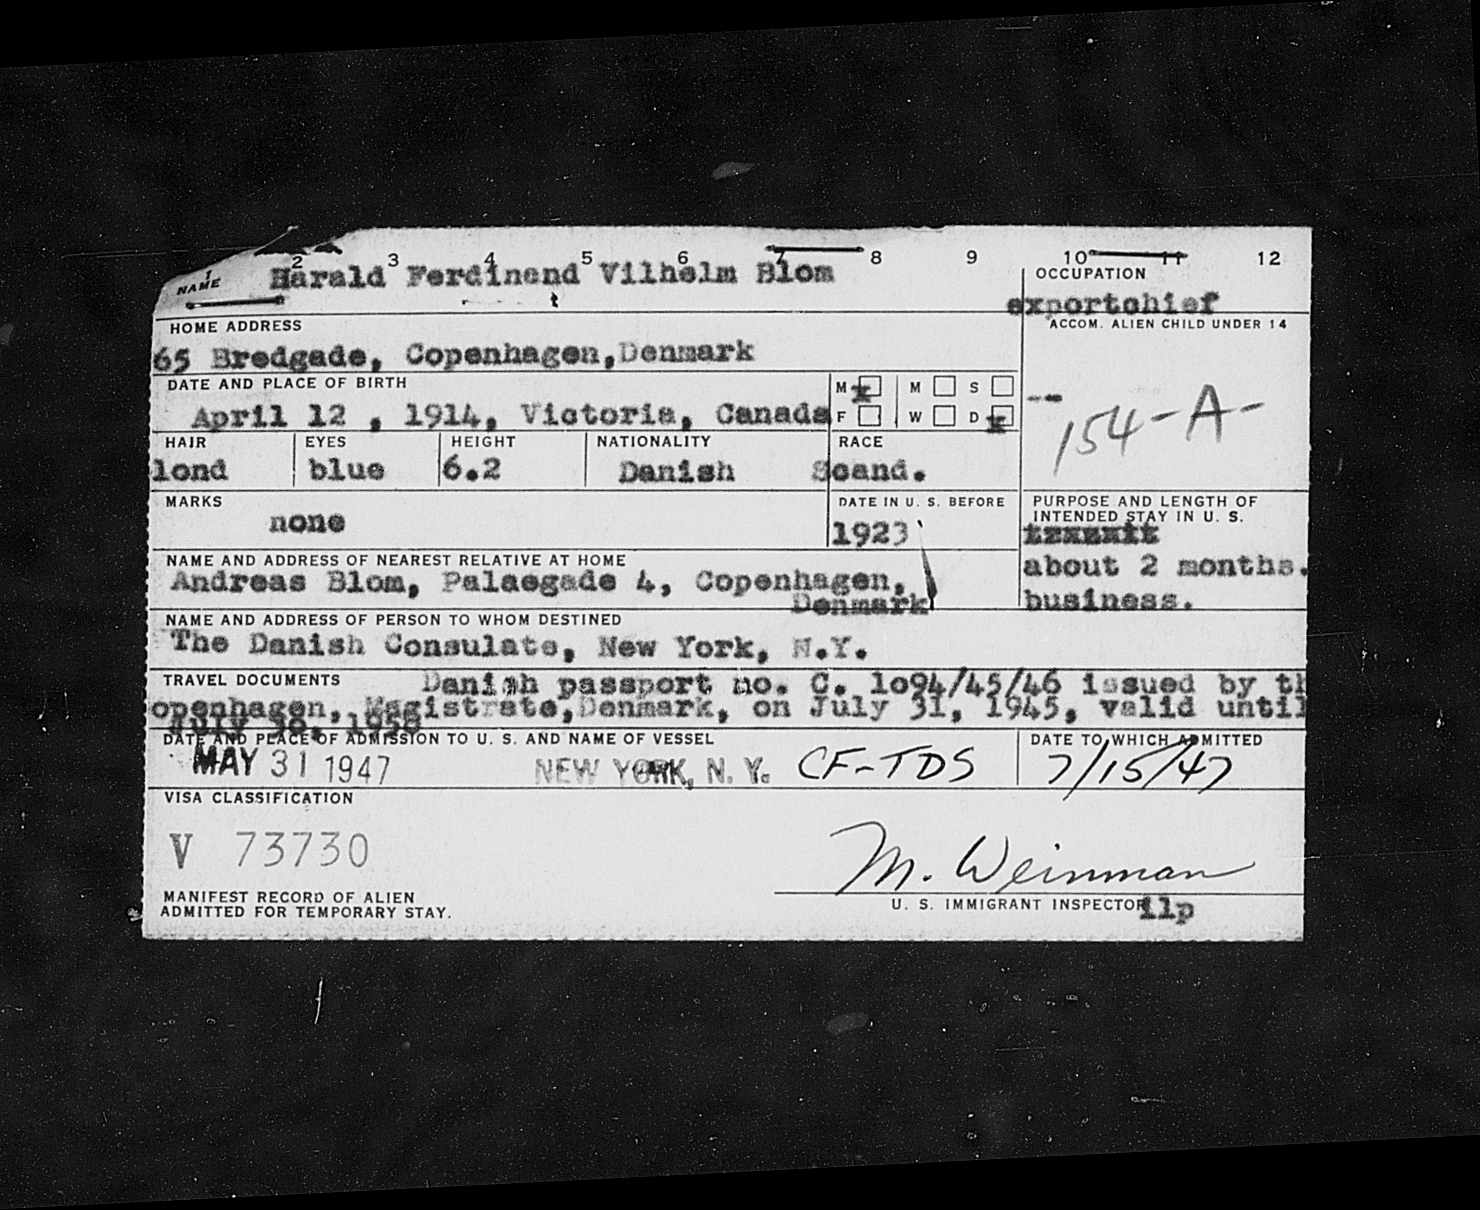 1 2 3 4 5 6 7 8 9 10 11 12
NAME Harald Ferdinand Vilhelm Blom
OCCUPATION
exportchief
HOME ADDRESS
ACCOM. ALIEN CHILD UNDER 14
65 Bredgade, Copenhagen, Denmark
DATE AND PLACE OF BIRTH
M x M S
April 12 , 1914, Victoria, Canada
F W D x
154-A-
HAIR EYES HEIGHT NATIONALITY RACE
lond blue 6.2 Danish Scand.
MARKS
DATE IN U. S. BEFORE
PURPOSE AND LENGTH OF
INTENDED STAY IN U. S.
none
1923
about 2 months.
business.
NAME AND ADDRESS OF NEAREST RELATIVE AT HOME
Andreas Blom, Palaegade 4, Copenhagen,
Denmark
NAME AND ADDRESS OF PERSON TO WHOM DESTINED
The Danish Consulate, New York, N.Y.
TRAVEL DOCUMENTS Danish passport no. C. 1o94/45/46 issued by th
openhagen, Magistrate, Denmark, on July 31, 1945, valid until
July 30, 1958
DATE AND PLACE OF ADMISSION TO U. S. AND NAME OF VESSEL
DATE TO WHICH ADMITTED
MAY 31 1947 NEW YORK, N. Y. CF-TDS 7/15/47
VISA CLASSIFICATION
V 73730
M. Weinman
MANIFEST RECORD OF ALIEN
ADMITTED FOR TEMPORARY STAY.
U. S. IMMIGRANT INSPECTOR
llp